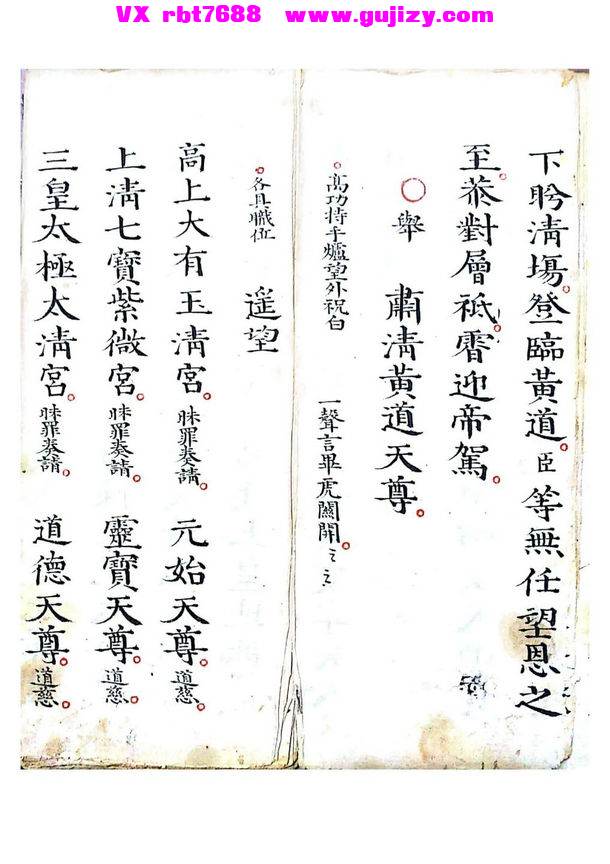 VX rbt7688 www.gujizy.com
下盻清塲登臨黃道臣等無任望恩之
至恭對層祗霄迎帝駕
舉 肅清黃道天尊
高功持手爐望外祝白 一聲言畢虎關開
各具職位 遥望
高上大有玉清宮昧罪奏請 元始天尊道慈
上清七寶紫微宮昧罪奏請 靈寶天尊道慈
三皇太極太清宮昧罪奏請 道德天尊道慈